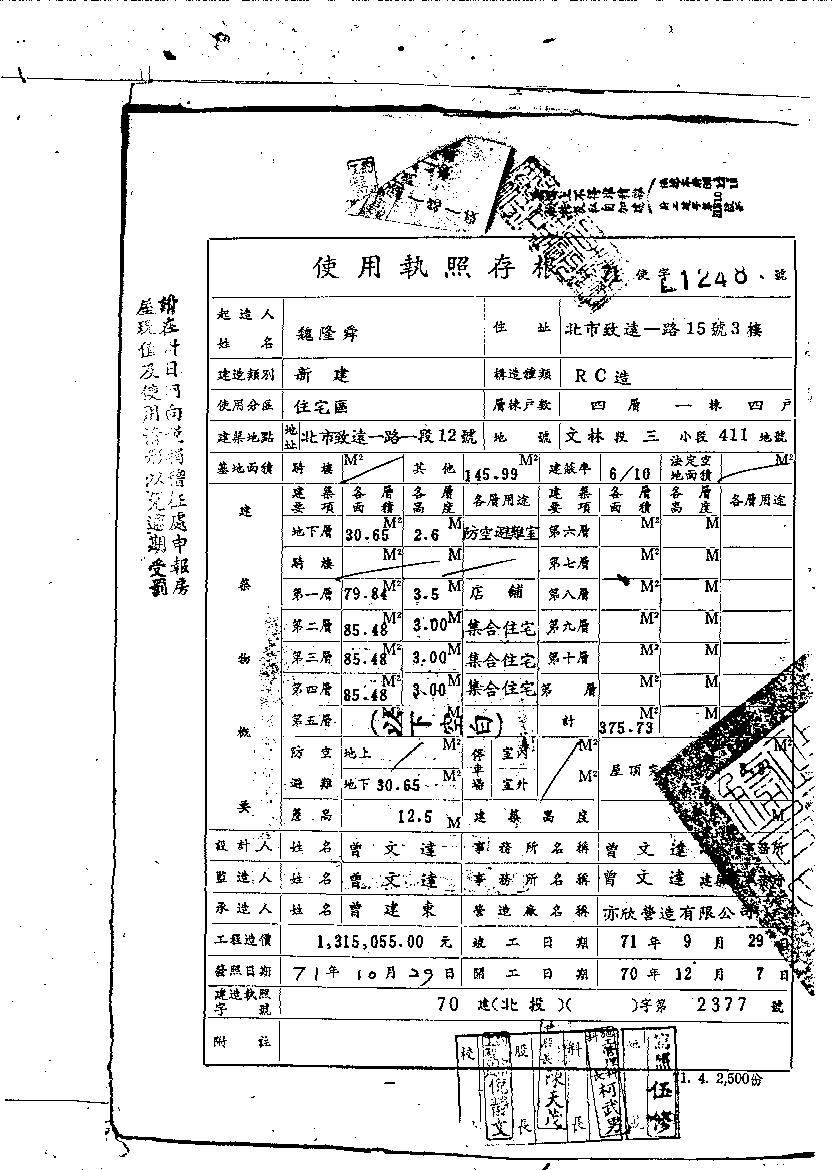 使用執照存根 71 使字 1248 號
起造人姓名 魏隆舜 住址 北市致遠一路15號3樓
建造類別 新建 構造種類 RC造
使用分區 住宅區 層棟戶數 四層一棟四戶
建築地點 地址 北市致遠一路一段12號 地號 文林段三小段411地號
基地面積 騎樓 M² 其他 145.99 建蔽率 6/10 法定空地面積 M²
建築物概要
建築要項 各層面積 各層高度 各層用途 建築要項 各層面積 各層高度 各層用途
地下層 30.65 M² 2.6 M 防空避難室 第六層 M² M
騎樓 M² M 第七層 M² M
第一層 79.84 M² 3.5 M 店鋪 第八層 M² M
第二層 85.48 M² 3.00 M 集合住宅 第九層 M² M
第三層 85.48 M² 3.00 M 集合住宅 第十層 M² M
第四層 85.48 M² 3.00 M 集合住宅 第 層 M² M
第五層 (以下空白) 計 375.73 M² M
防空避難 地上 M² 停車場 室內 M² 屋頂
地下 30.65 M² 室外 M²
簷高 12.5 M 建築高度 M
設計人 姓名 曾文達 事務所名稱 曾文達 事務所
監造人 姓名 曾文達 事務所名稱 曾文達建
承造人 姓名 曾建東 營造廠名稱 亦欣營造有限公司
工程造價 1,315,055.00 元 竣工日期 71年9月29日
發照日期 71年10月29日 開工日期 70年12月7日
建造執照字號 70 建(北投)( )字第 2377 號
附註
71. 4. 2,500份
校
股長
科長 柯武男
陳天茂